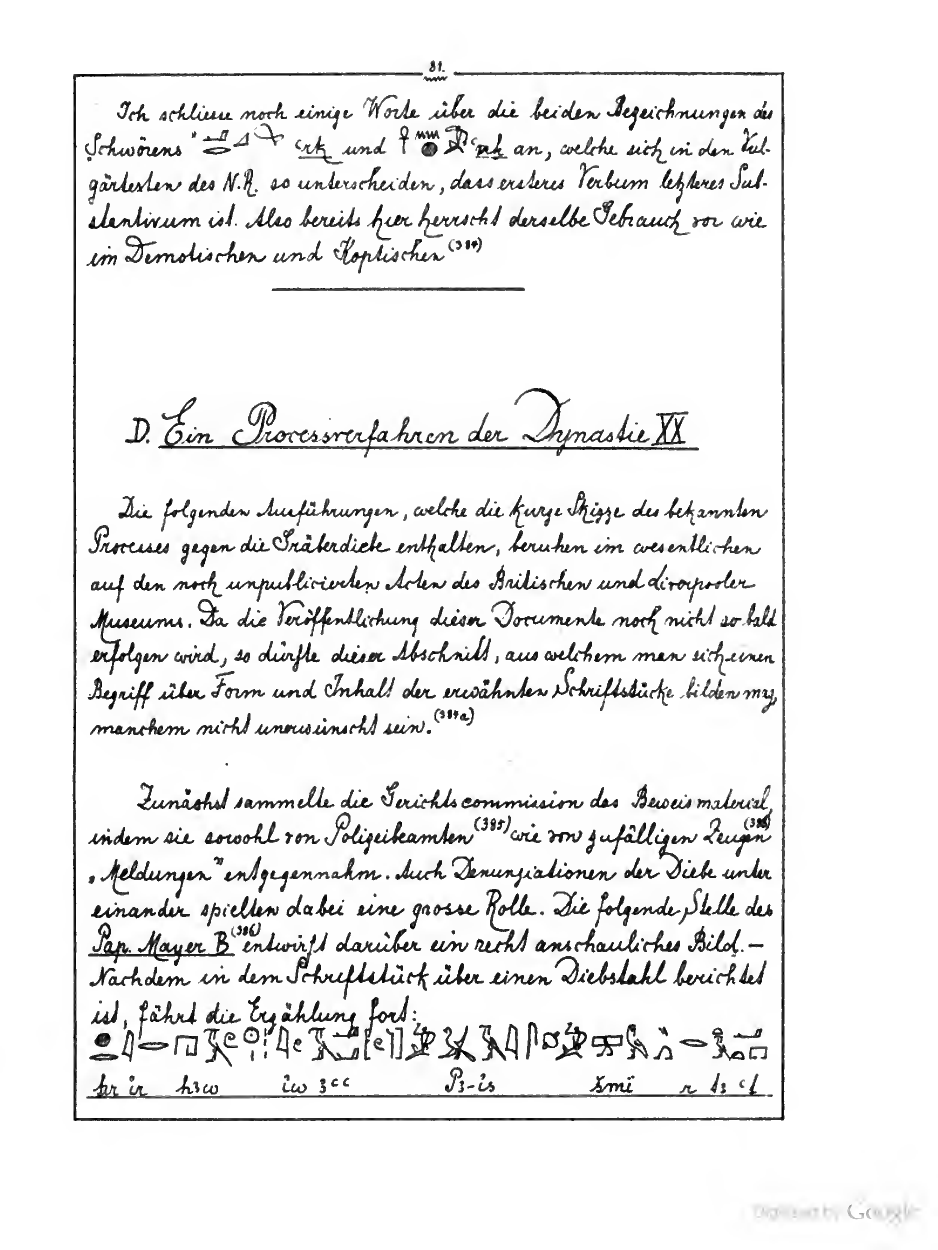 81.
Ich schliesse noch einige Worte über die beiden Bezeichnungen des
Schwörens ꜥrk und ꜥnḫ an, welche sich in den Vul-
gärtexten des N.R. so unterscheiden, dass ersteres Verbum letzteres Sub-
stantivum ist. Also bereits hier herrscht derselbe Gebrauch vor wie
im Demotischen und Koptischen (384)
D. Ein Processverfahren der Dynastie XX
Die folgenden Ausführungen, welche die kurze Skizze des bekannten
Processes gegen die Gräberdiebe enthalten, beruhen im wesentlichen
auf den noch unpublicierten Acten des Britischen und Liverpooler
Museums. Da die Veröffentlichung dieser Documente noch nicht so bald
erfolgen wird, so dürfte dieser Abschnitt, aus welchem man sich einen
Begriff über Form und Inhalt der erwähnten Schriftstücke bilden mag,
manchem nicht unerwünscht sein. (384a)
Zunächst sammelte die Gerichtscommission das Beweismaterial,
indem sie sowohl von Polizeibeamten (385) wie von zufälligen Zeugen
„Meldungen" entgegennahm. Auch Denunziationen der Diebe unter
einander spielten dabei eine grosse Rolle. Die folgende Stelle des
Pap. Mayer B (386) entwirft darüber ein recht anschauliches Bild. —
Nachdem in dem Schriftstück über einen Diebstahl berichtet
ist, fährt die Erzählung fort:
ḫr ir hꜣw iw ꜥꜥ Pꜣ-is šmi r tꜣ ꜥt
Digitized by Google